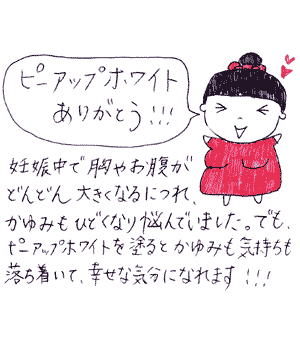 ピュアップホワイト
ありがとう!!!
妊娠中で胸やお腹が
どんどん大きくなるにつれ、
かゆみもひどくなり悩んでいました。でも、
ピュアップホワイトを塗るとかゆみも気持ちも
落ち着いて、幸せな気分になれます!!!